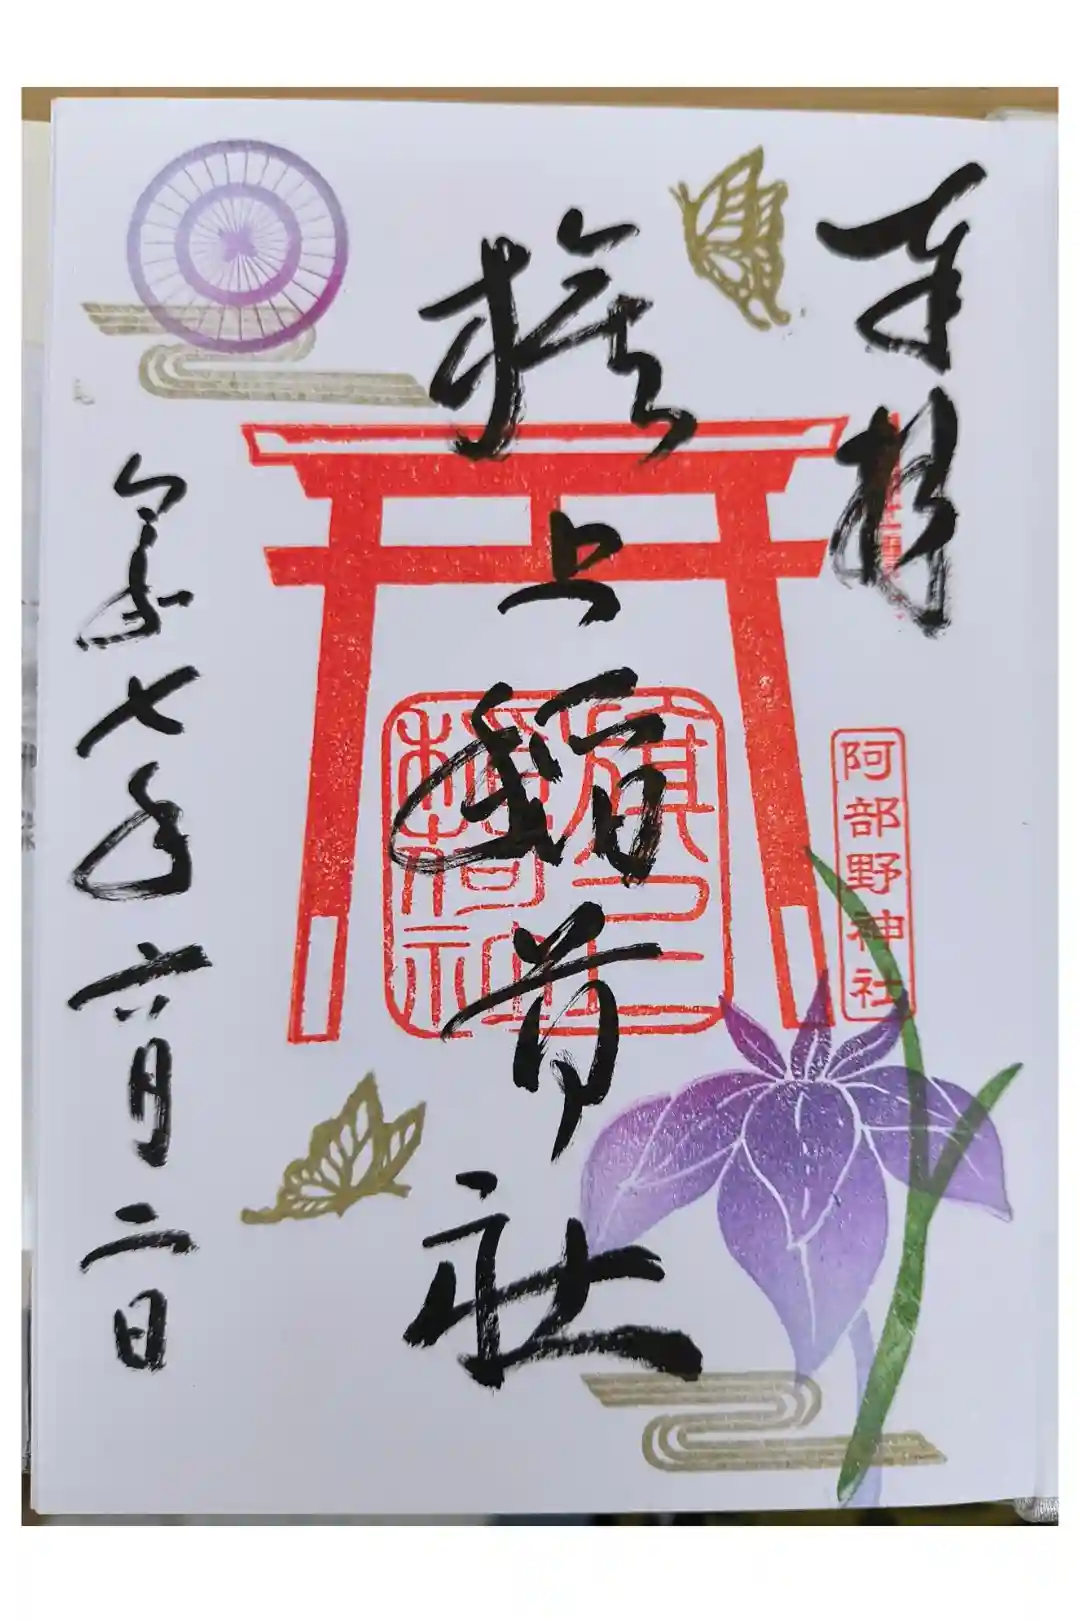 奉拝
阿部野神社
旗上稲荷社
旗上
稲荷社
令和七年六月二日